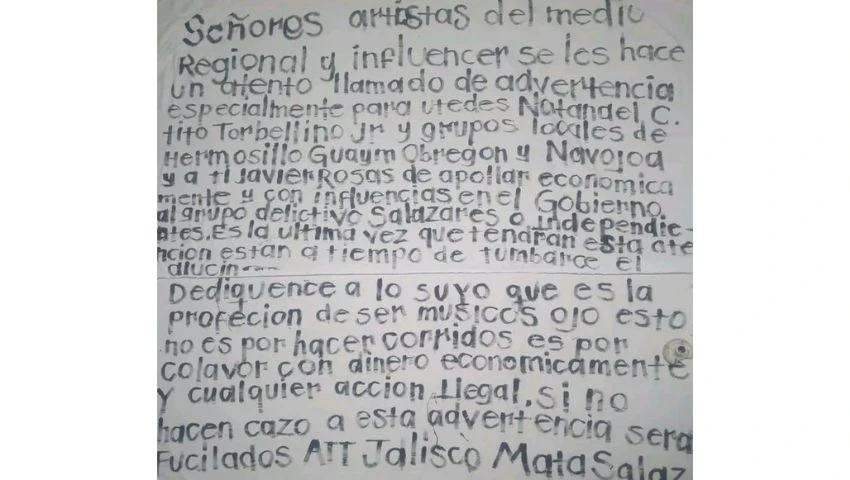 Señores artistas del medio
Regional y influencer se les hace
un atento llamado de advertencia
especialmente para utedes Natanael C.
tito Torbellino Jr y grupos locales de
Hermosillo Guaym Obregon y Navojoa
y a ti Javier Rosas de apollar economica
mente y con influencias en el Gobierno
al grupo delictivo Salazares o independie-
ntes. Es la ultima vez que tendran esta ate
ncion estan a tiempo de tumbarce el
alucin
Dediquence a lo suyo que es la
profecion de ser musicos ojo esto
no es por hacer corridos es por
colavor con dinero economicamente
Y cualquier accion Ilegal. si no
hacen cazo a esta advertencia sera
Fucilados ATT Jalisco Mata Salaz